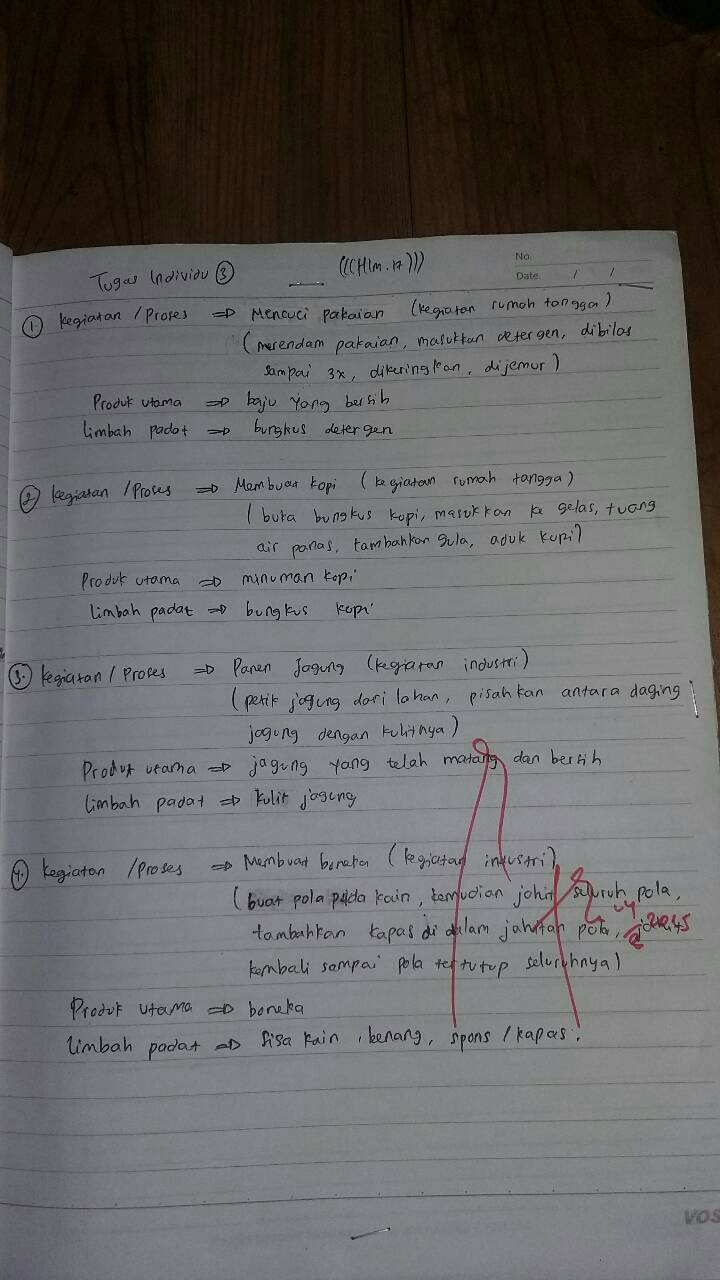 Tugas Individu ③ (((Hlm.17)))
No.
Date. / /
① Kegiatan / Proses ⇒ Mencuci pakaian (kegiatan rumah tangga)
(merendam pakaian, masukkan detergen, dibilas
sampai 3x, dikeringkan, dijemur)
Produk utama ⇒ baju yang bersih
limbah padat ⇒ bungkus detergen
② kegiatan / Proses ⇒ Membuat kopi (kegiatan rumah tangga)
(buka bungkus kopi, masukkan ke gelas, tuang
air panas, tambahkan gula, aduk kopi)
Produk utama ⇒ minuman kopi
limbah padat ⇒ bungkus kopi
③. kegiatan / Proses ⇒ Panen Jagung (kegiatan industri)
(petik jagung dari lahan, pisahkan antara daging
jagung dengan kulitnya)
Produk utama ⇒ jagung yang telah matang dan bersih
limbah padat ⇒ kulit jagung
④. kegiatan / Proses ⇒ Membuat boneka (kegiatan industri)
(buat pola pada kain, kemudian jahit seluruh pola,
tambahkan kapas di dalam jahitan pola,
kembali sampai pola tertutup seluruhnya)
Produk utama ⇒ boneka
limbah padat ⇒ sisa kain, benang, spons / kapas.
VOS